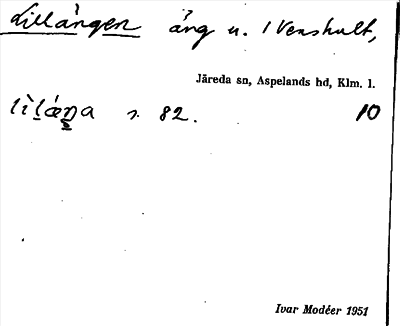 Lillängen äng u. 1 Venshult,
Järeda sn, Aspelands hd, Klm. l.
lìlǽŋa s. 82. 10
Ivar Modéer 1951